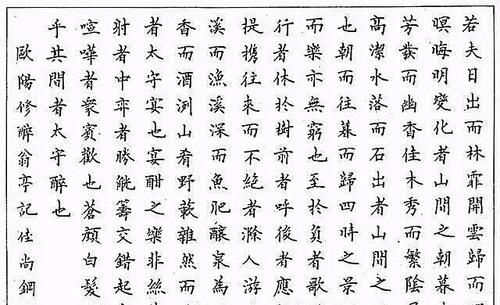 若夫日出而林霏開雲歸而
暝晦明變化者山間之朝暮
芳發而幽香佳木秀而繁陰
高潔水落而石出者山間之
也朝而往暮而歸四時之景
而樂亦無窮也至於負者歌
行者休於樹前者呼後者應
提攜往來而不絕者滁人游
溪而漁溪深而魚肥釀泉為
香而酒洌山肴野蔌雜然而
者太守宴也宴酣之樂非絲
射者中弈者勝觥籌交錯起
喧嘩者眾賓歡也蒼顏白髮
乎其間者太守醉也
歐陽修醉翁亭記任尚鋼